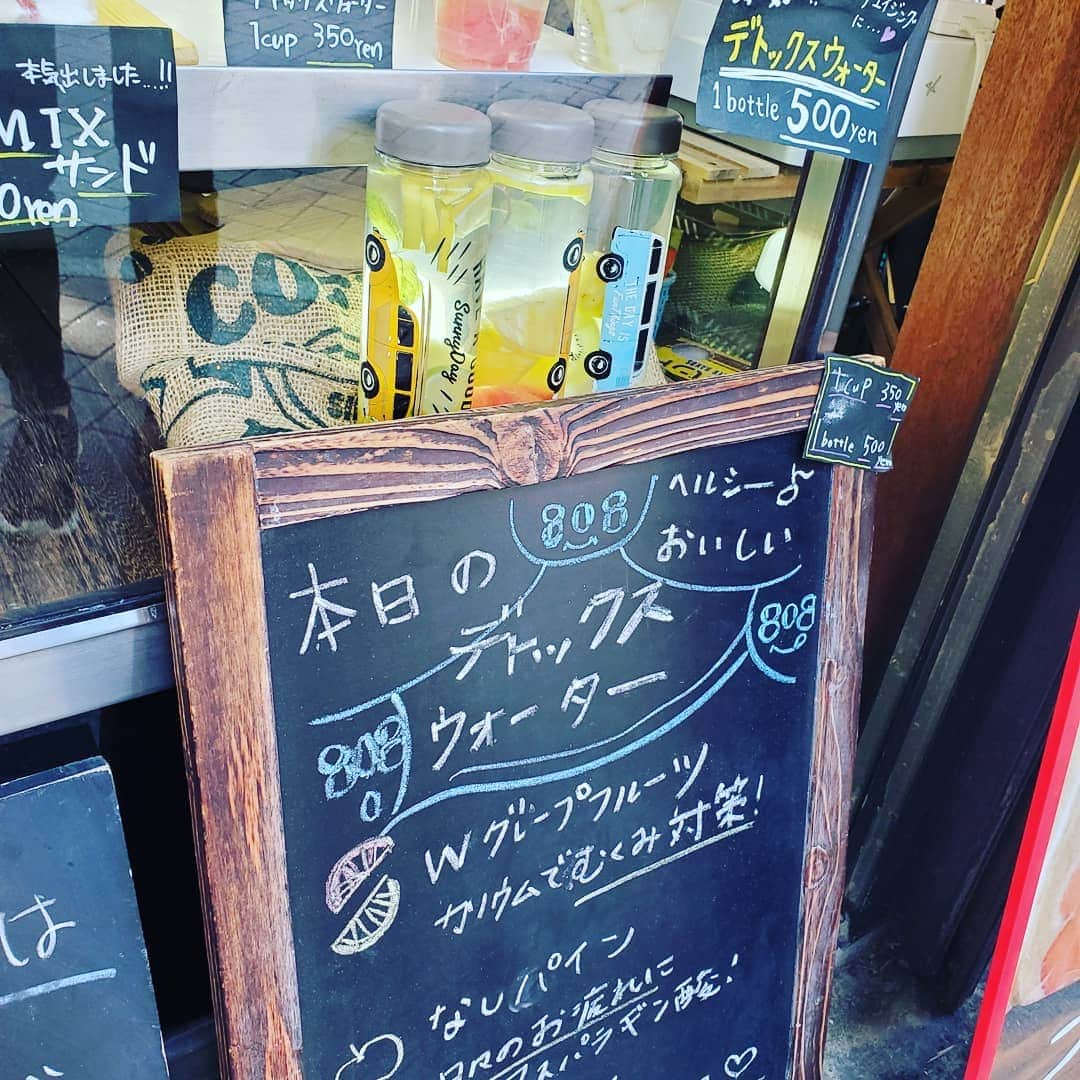 1cup 350yen
本気出しました...!!
MIX
サンド
0yen
デトックスウォーター
1bottle 500yen
SunnyDay
THE DAY IS
1cup 350yen
1bottle 500yen
ヘルシー♪
おいしい
808
本日の
デトックス
ウォーター
808
808
Wグレープフルーツ
カリウムでむくみ対策!
なしパイン
日々のお疲れに
アスパラギン酸!
は